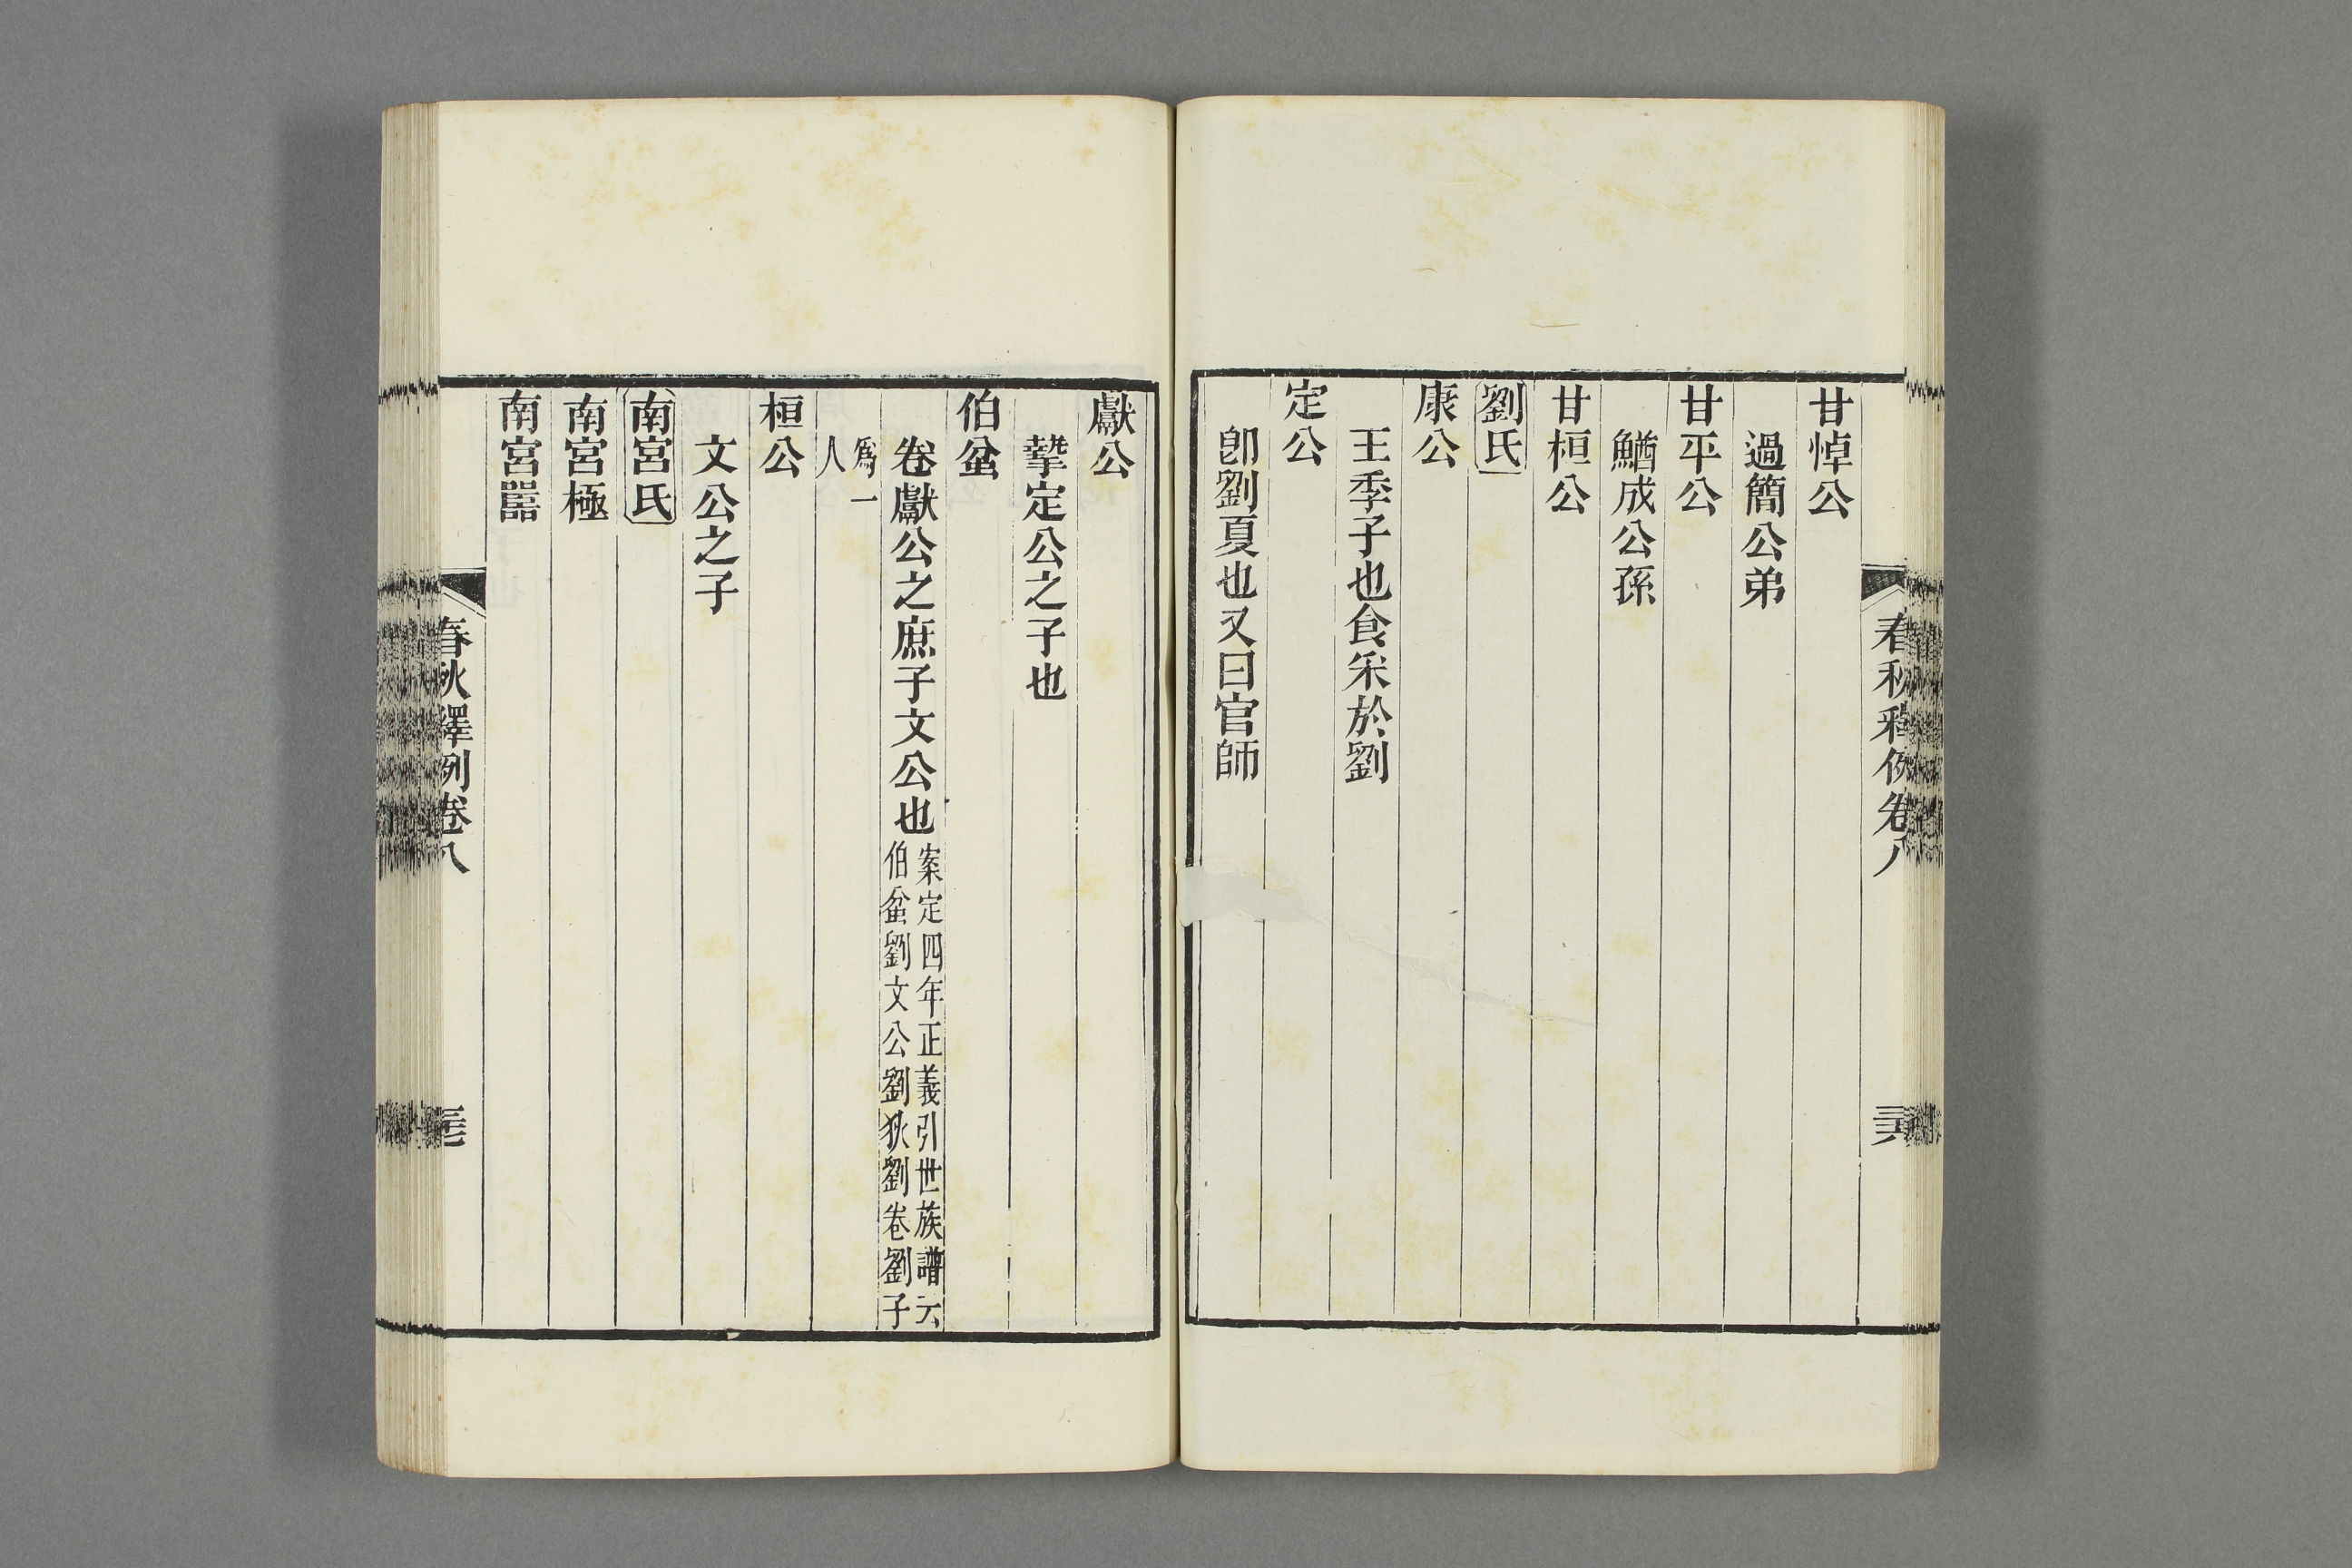 春秋釋例卷八
甘悼公
過簡公弟
甘平公
鰌成公孫
甘桓公
劉氏
康公
王季子也食采於劉
定公
卽劉夏也又曰官師
獻公
摯定公之子也
伯蚠
卷獻公之庶子文公也案定四年正義引世族譜云
伯蚠劉文公劉狄劉卷劉子
爲一
人
桓公
文公之子
南宮氏
南宮極
南宮嚚
春秋繹例卷八